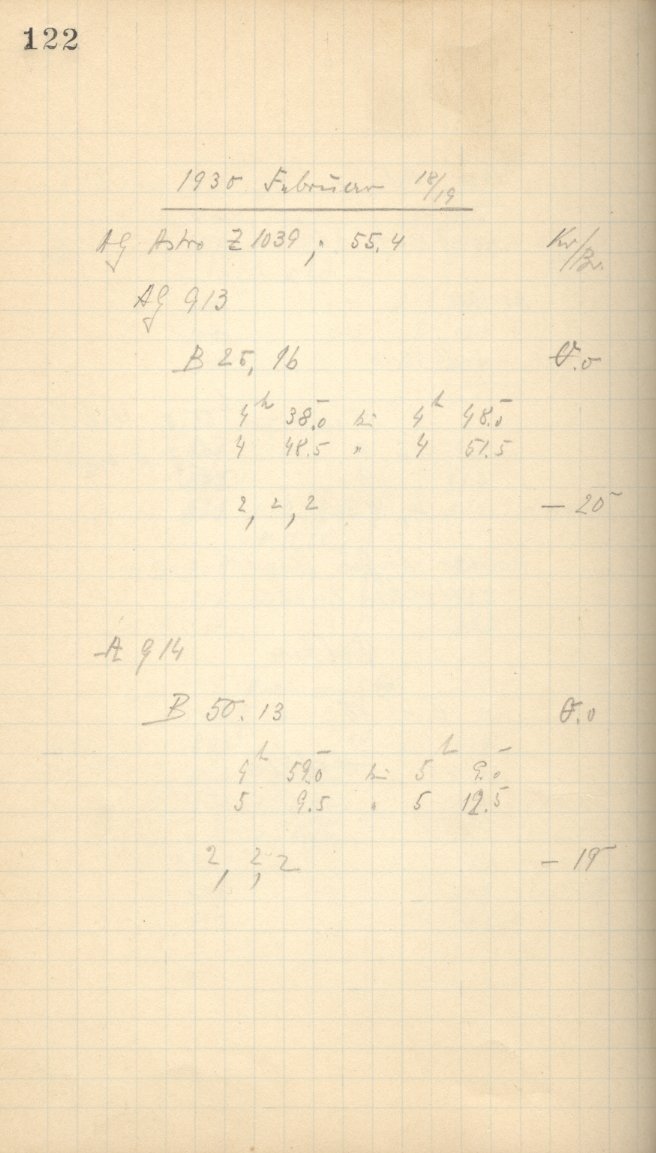 122
1930 Februar 18/19
AG Astro Z 1039 ; 55.4 Kr/Br.
AG 913
B 25, 16 σ.0
4h 38.0 bis 4h 48.0
4 48.5 " 4 51.5
2, 2, 2 – 20
A G 14
B 50. 13 σ.0
4h 59.0 bis 5h 9.0
5 9.5 " 5 12.5
2, 2, 2 – 19